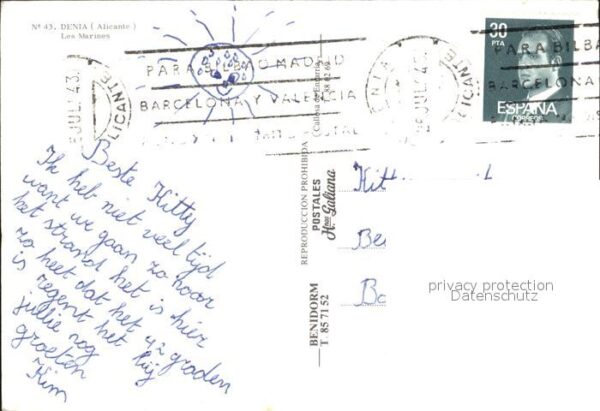 Nº 43. DENIA (Alicante)
Les Marines
PARA BILBAO MADRID
BARCELONA Y VALENCIA
DENIA
ALICANTE
JUL. 43.
PARA BILBA
BARCELONA
30
PTA
ESPAÑA
CORREOS
Beste Kitty
Ik heb niet veel tijd
want we gaan zo naar
het strand het is hier
zo heet dat het 42 graden
is regent het bij
jullie nog
groeten
Kim
REPRODUCCION PROHIBIDA
POSTALES
Hnos Galiana
BENIDORM
T. 85 71 52
Kitt
Be
Bo
privacy protection
Datenschutz